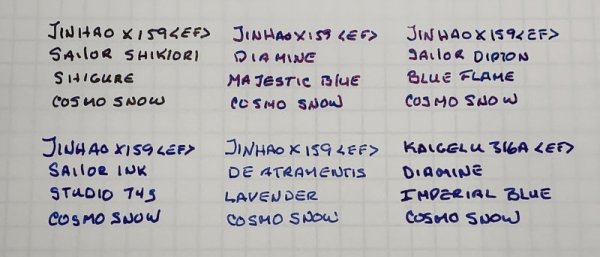 JINHAO X159 <EF>
SAILOR SHIKIORI
SHIGURE
COSMO SNOW
JINHAO X159 <EF>
DIAMINE
MAJESTIC BLUE
COSMO SNOW
JINHAO X159 <EF>
SAILOR DIPTON
BLUE FLAME
COSMO SNOW
JINHAO X159 <EF>
SAILOR INK
STUDIO 743
COSMO SNOW
JINHAO X159 <EF>
DE ATRAMENTIS
LAVENDER
COSMO SNOW
KAIGELU 316A <EF>
DIAMINE
IMPERIAL BLUE
COSMO SNOW